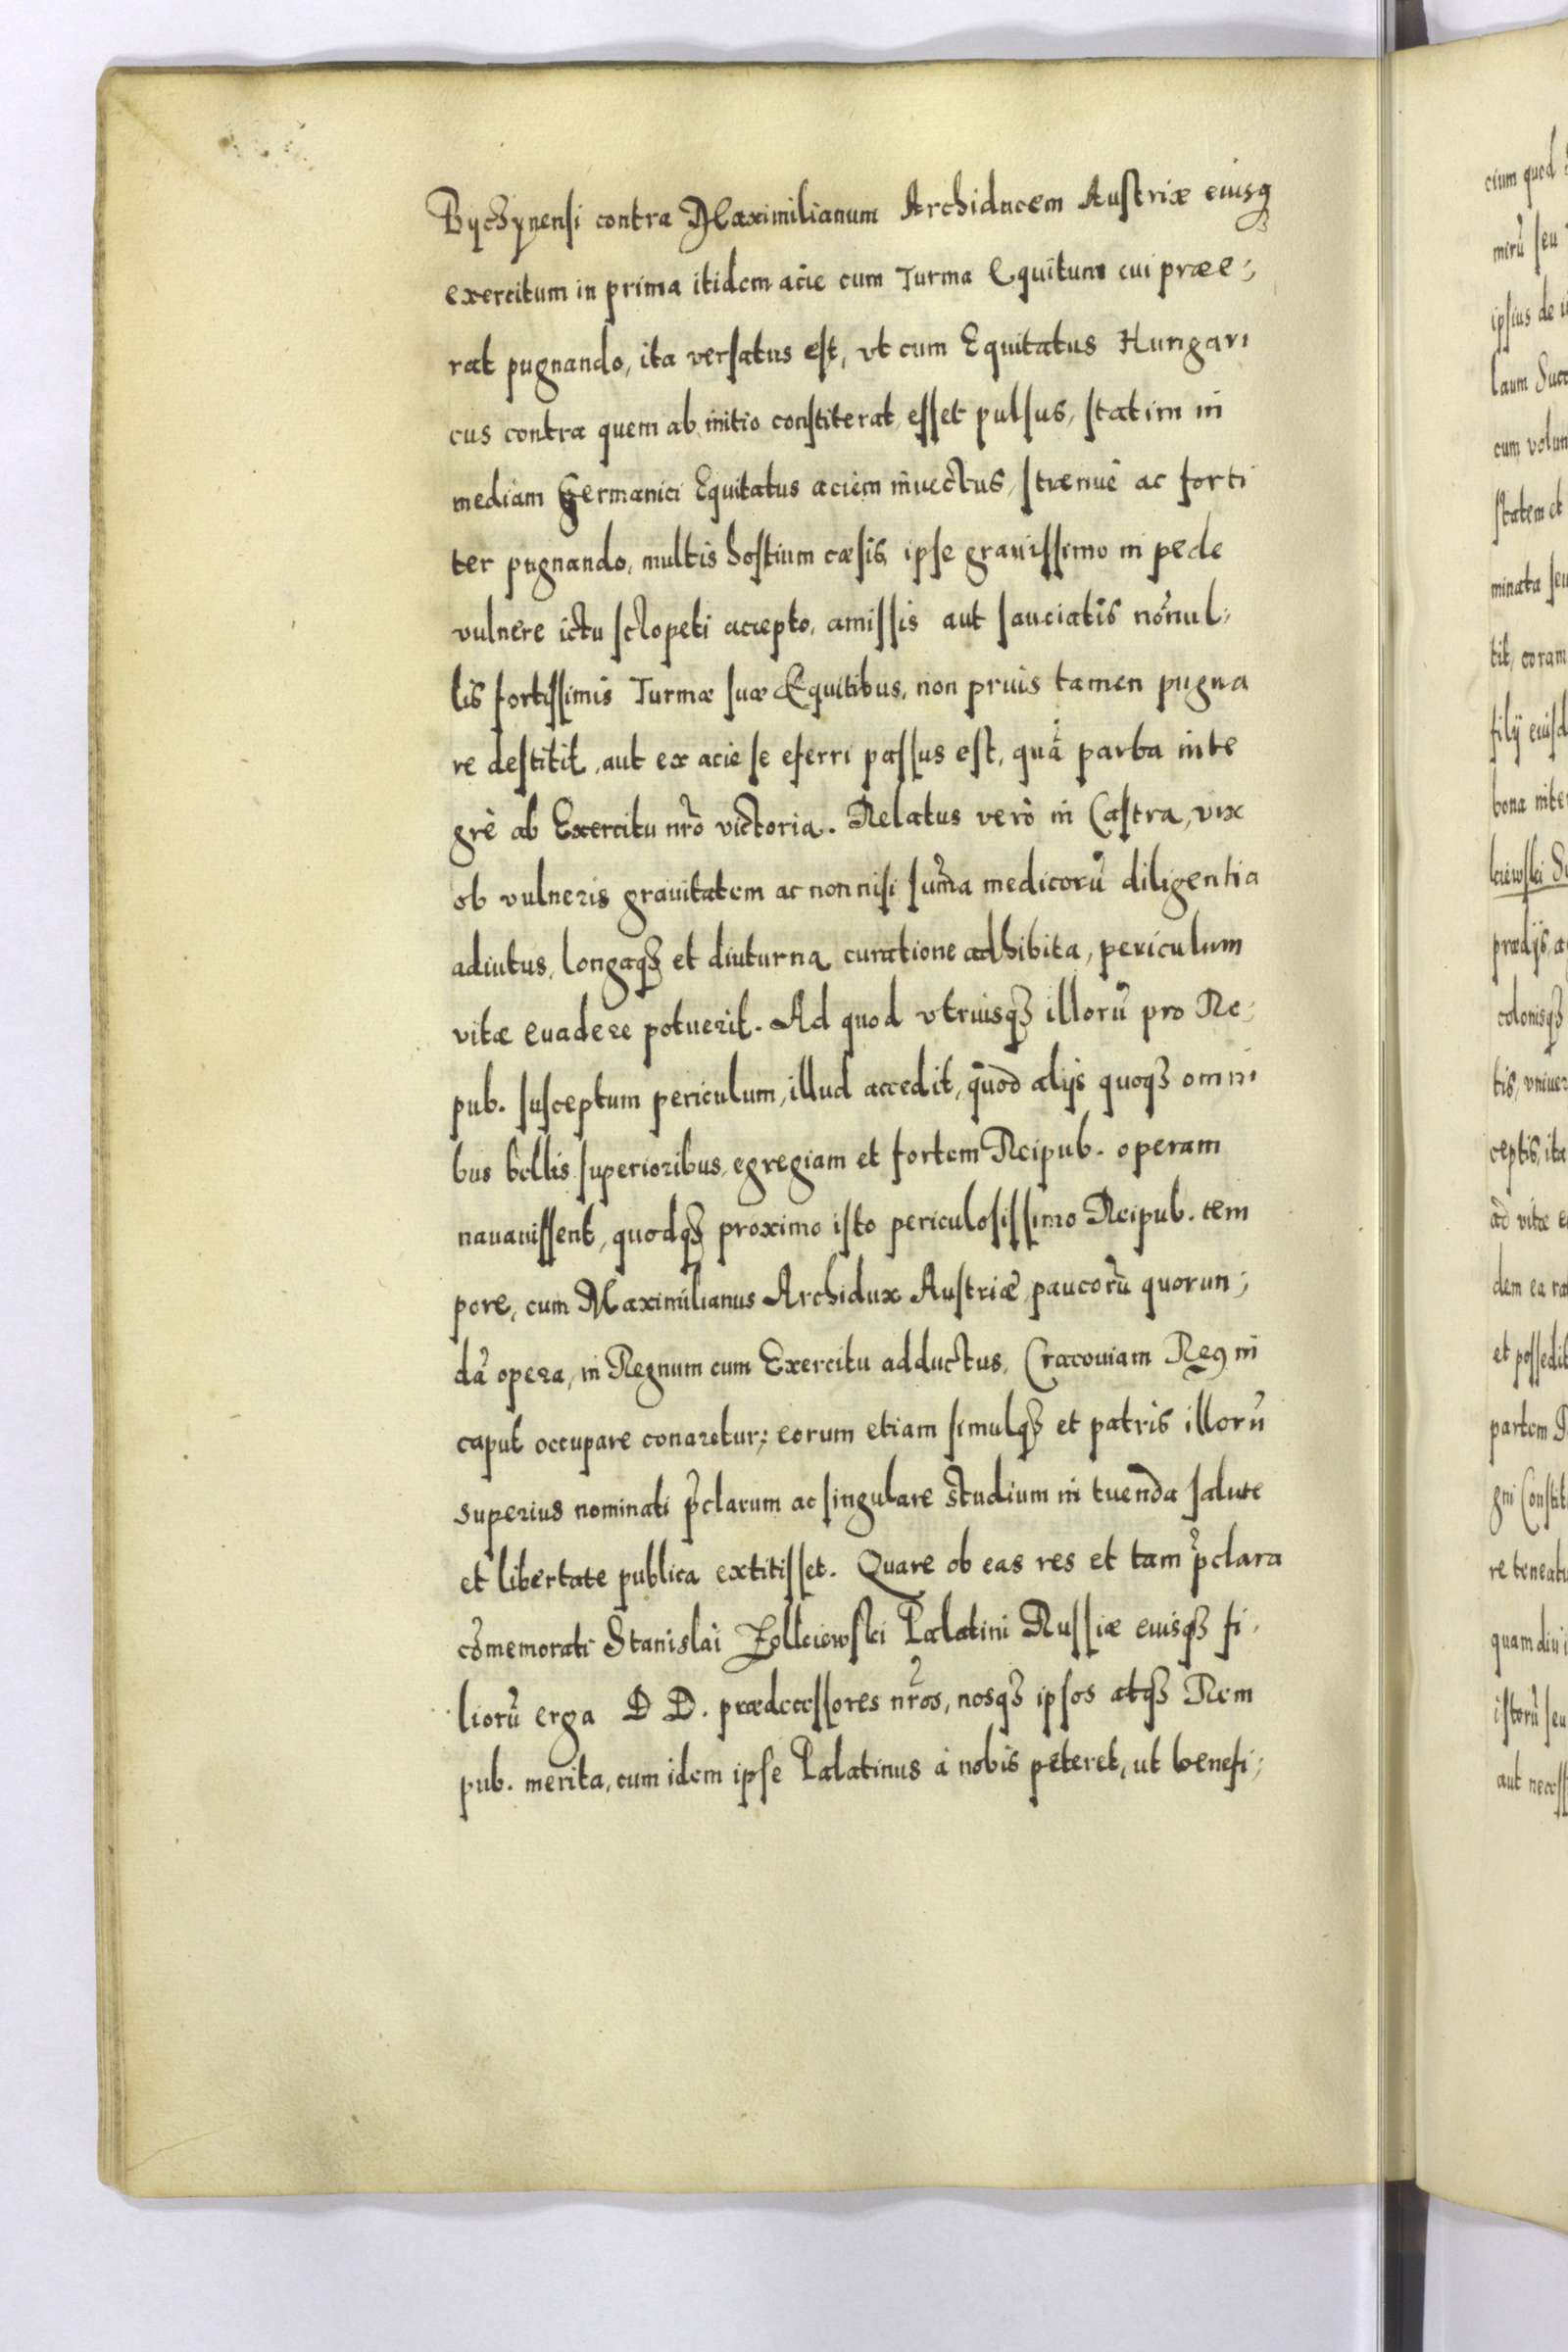 Bychynensi contra Maximilianum Archiducem Austriæ eiusq̃
exercitum in prima itidem acie cum Turma Equitum cui præe;
rat pugnando, ita versatus est, vt cum Equitatus Hungari
cus contra quem ab initio constiterat, esset pulsus, statim in
mediam Germanici Equitatus aciem inuectus, strenuè ac forti
ter pugnando, multis hostium cæsis, ipse grauissimo in pede
vulnere ictu sclopeti accepto, amissis aut sauciatis nõnul;
lis fortissimis Turmæ suæ Equitibus, non prius tamen pugna
re destitit, aut ex acie se eferri passus est, quã parta inte
grè ab Exercitu nr̃o victoria. Relatus verò in Castra, vix
ob vulneris grauitatem ac non nisi sum̃a medicorũ diligentia
adiutus, longaqꝫ et diuturna curatione adhibita, periculum
vitæ euadere potuerit. Ad quod vtriusqꝫ illorũ pro Re;
pub. susceptum periculum, illud accedit, quod alijs quoqꝫ omni
bus bellis superioribus, egregiam et fortem Reipub. operam
nauauissent, quodqꝫ proximo isto periculosissimo Reipub. tem
pore, cum Maximilianus Archidux Austriæ paucorũ quorun;
dã opera, in Regnum cum Exercitu adductus, Cracouiam Regni
caput occupare conaretur; eorum etiam simulqꝫ et patris illorũ
superius nominati p̃clarum ac singulare studium in tuenda salute
et libertate publica extitisset. Quare ob eas res et tam p̃clara
cõmemorati Stanislai Zolkiewski Palatini Russiæ eiusqꝫ fi;
liorũ erga D D. prædecessores nr̃os, nosqꝫ ipsos atqꝫ Rem
pub. merita, cum idem ipse Palatinus à nobis peteret, ut benefi;
cium quod
mirũ seu
ipsius de
laum
cum volun
statem et
minata seu
tit, coram
filij eiusd
bona inte
prædijs, a
colonisqꝫ
tis, vniuer
ceptis, ita
ad vitæ e
dem ea ra
et possedit
partem
gni Constit
re teneatu
quam diu i
istorũ seu
aut necess